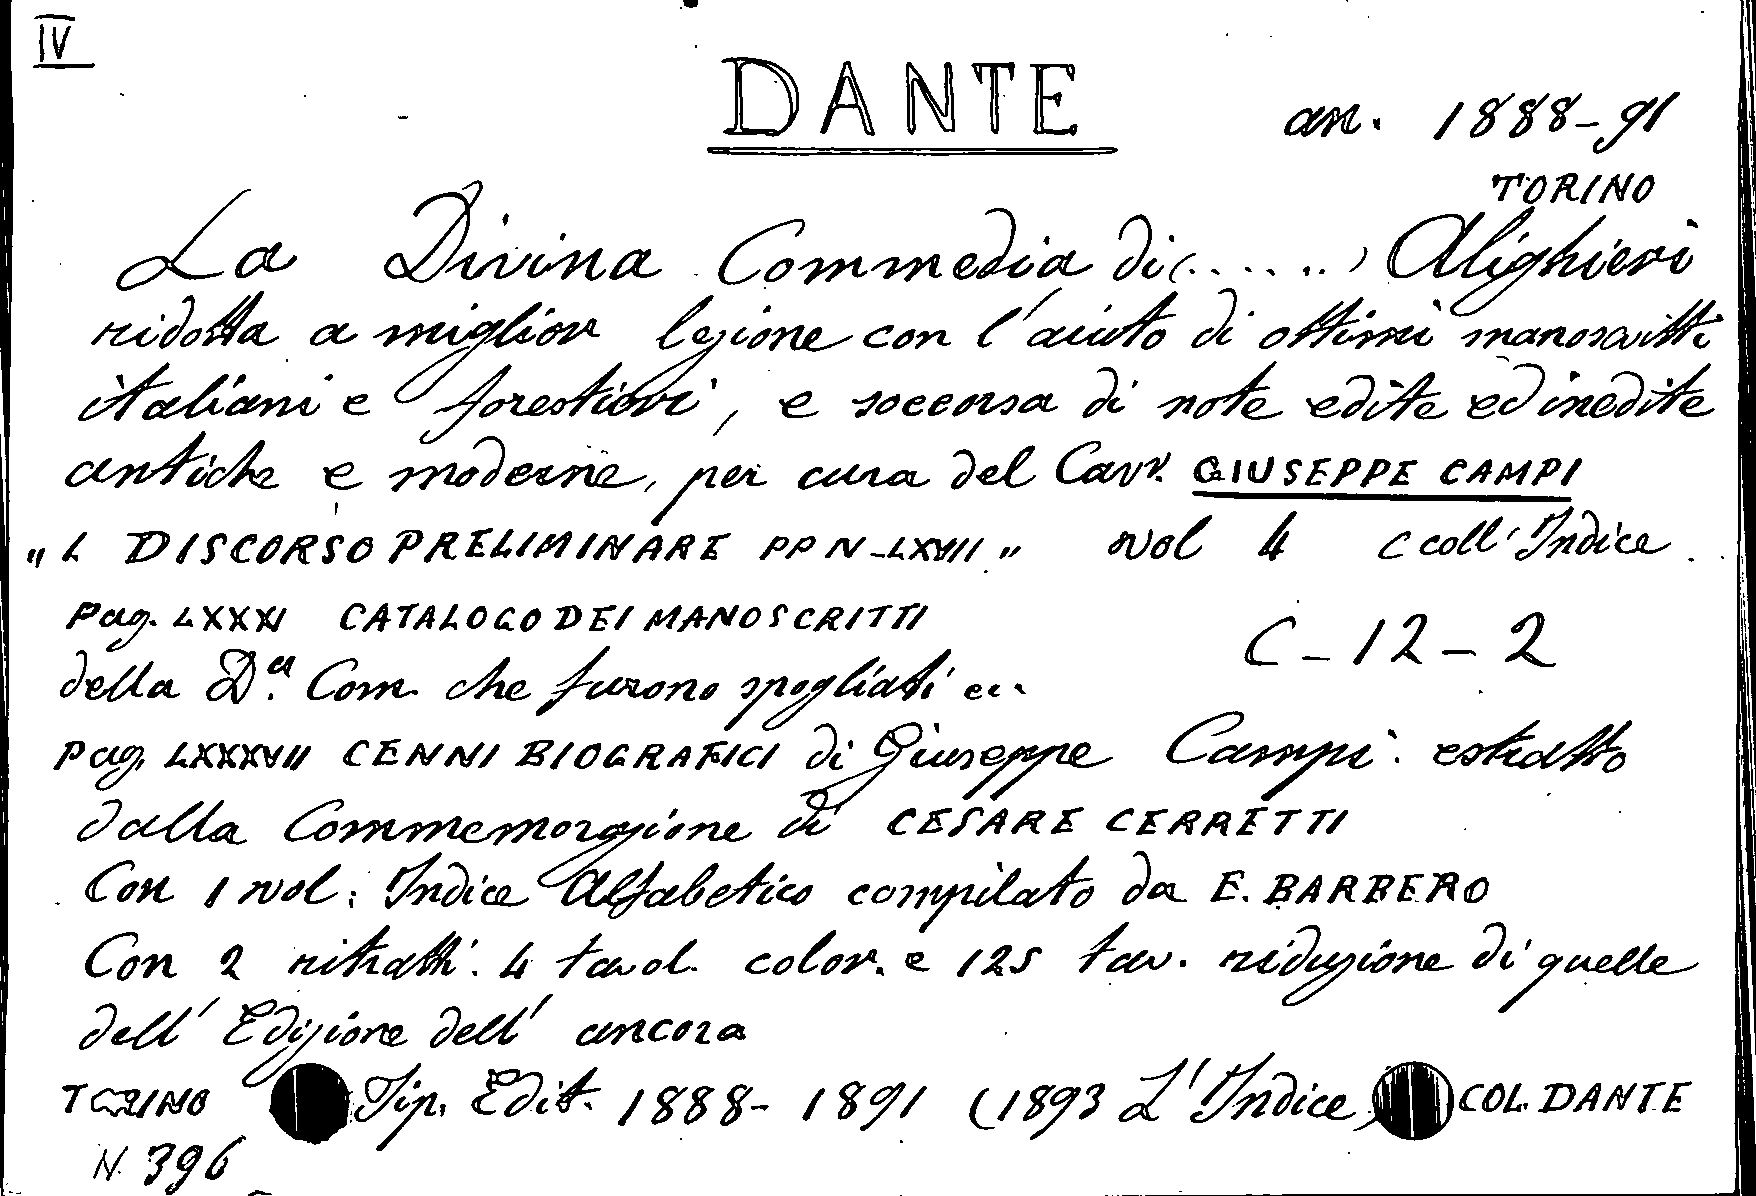 IV
DANTE
an. 1888-91
TORINO
La Divina Commedia di (......) Alighieri
ridotta a miglior lezione con l'aiuto di ottimi manoscritti
italiani e forestieri, e soccorsa di note edite ed inedite
antiche e moderne, per cura del Cav. GIUSEPPE CAMPI
"L DISCORSO PRELIMINARE PP N-LXVII" vol 4 C coll'Indice
Pag. LXXXI CATALOGO DEI MANOSCRITTI
C-12-2
della D.a Com. che furono spogliati ec..
Pag. LXXXVII CENNI BIOGRAFICI di Giuseppe Campi. estratto
dalla Commemorazione di CESARE CERRETTI
Con 1 vol: Indice Alfabetico compilato da E. BARBERO
Con 2 ritratti. 4 tavol. color. e 125 tav. riduzione di quelle
dell' Edizione dell' ancora
TORINO Tip. Edit. 1888-1891 (1893 L'Indice) COL. DANTE
N. 396